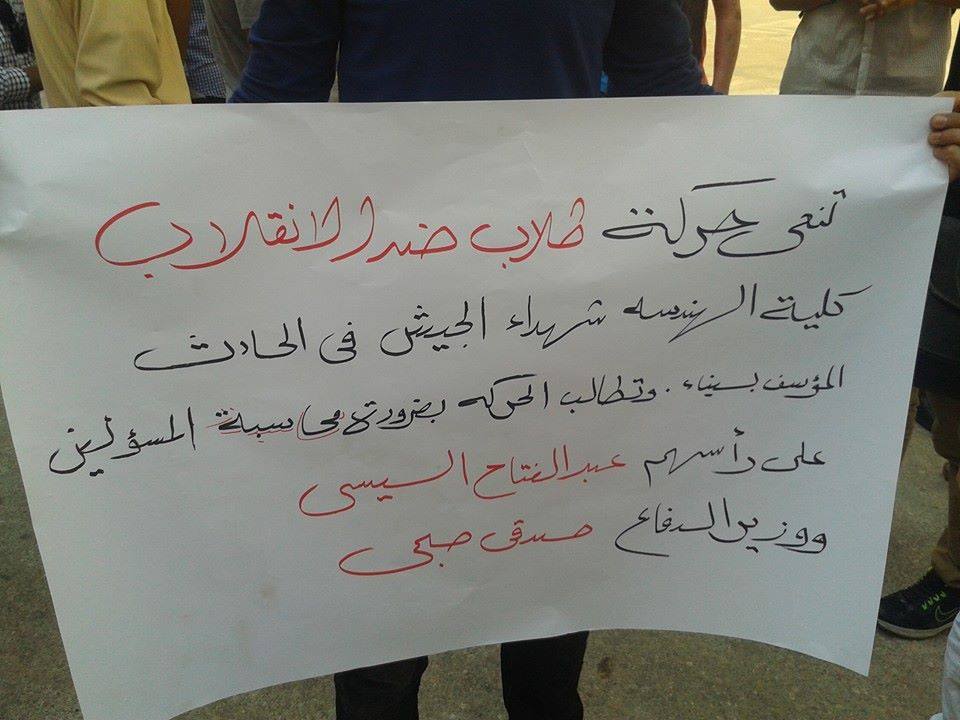 تنعى حركة طلاب ضد الانقلاب
كلية الهندسه شهداء الجيش فى الحادث
المؤسف بسيناء . وتطالب الحركه بضرورة محاسبة المسؤلين
على رأسهم عبد الفتاح السيسى
ووزير الدفاع صدقى صبحى